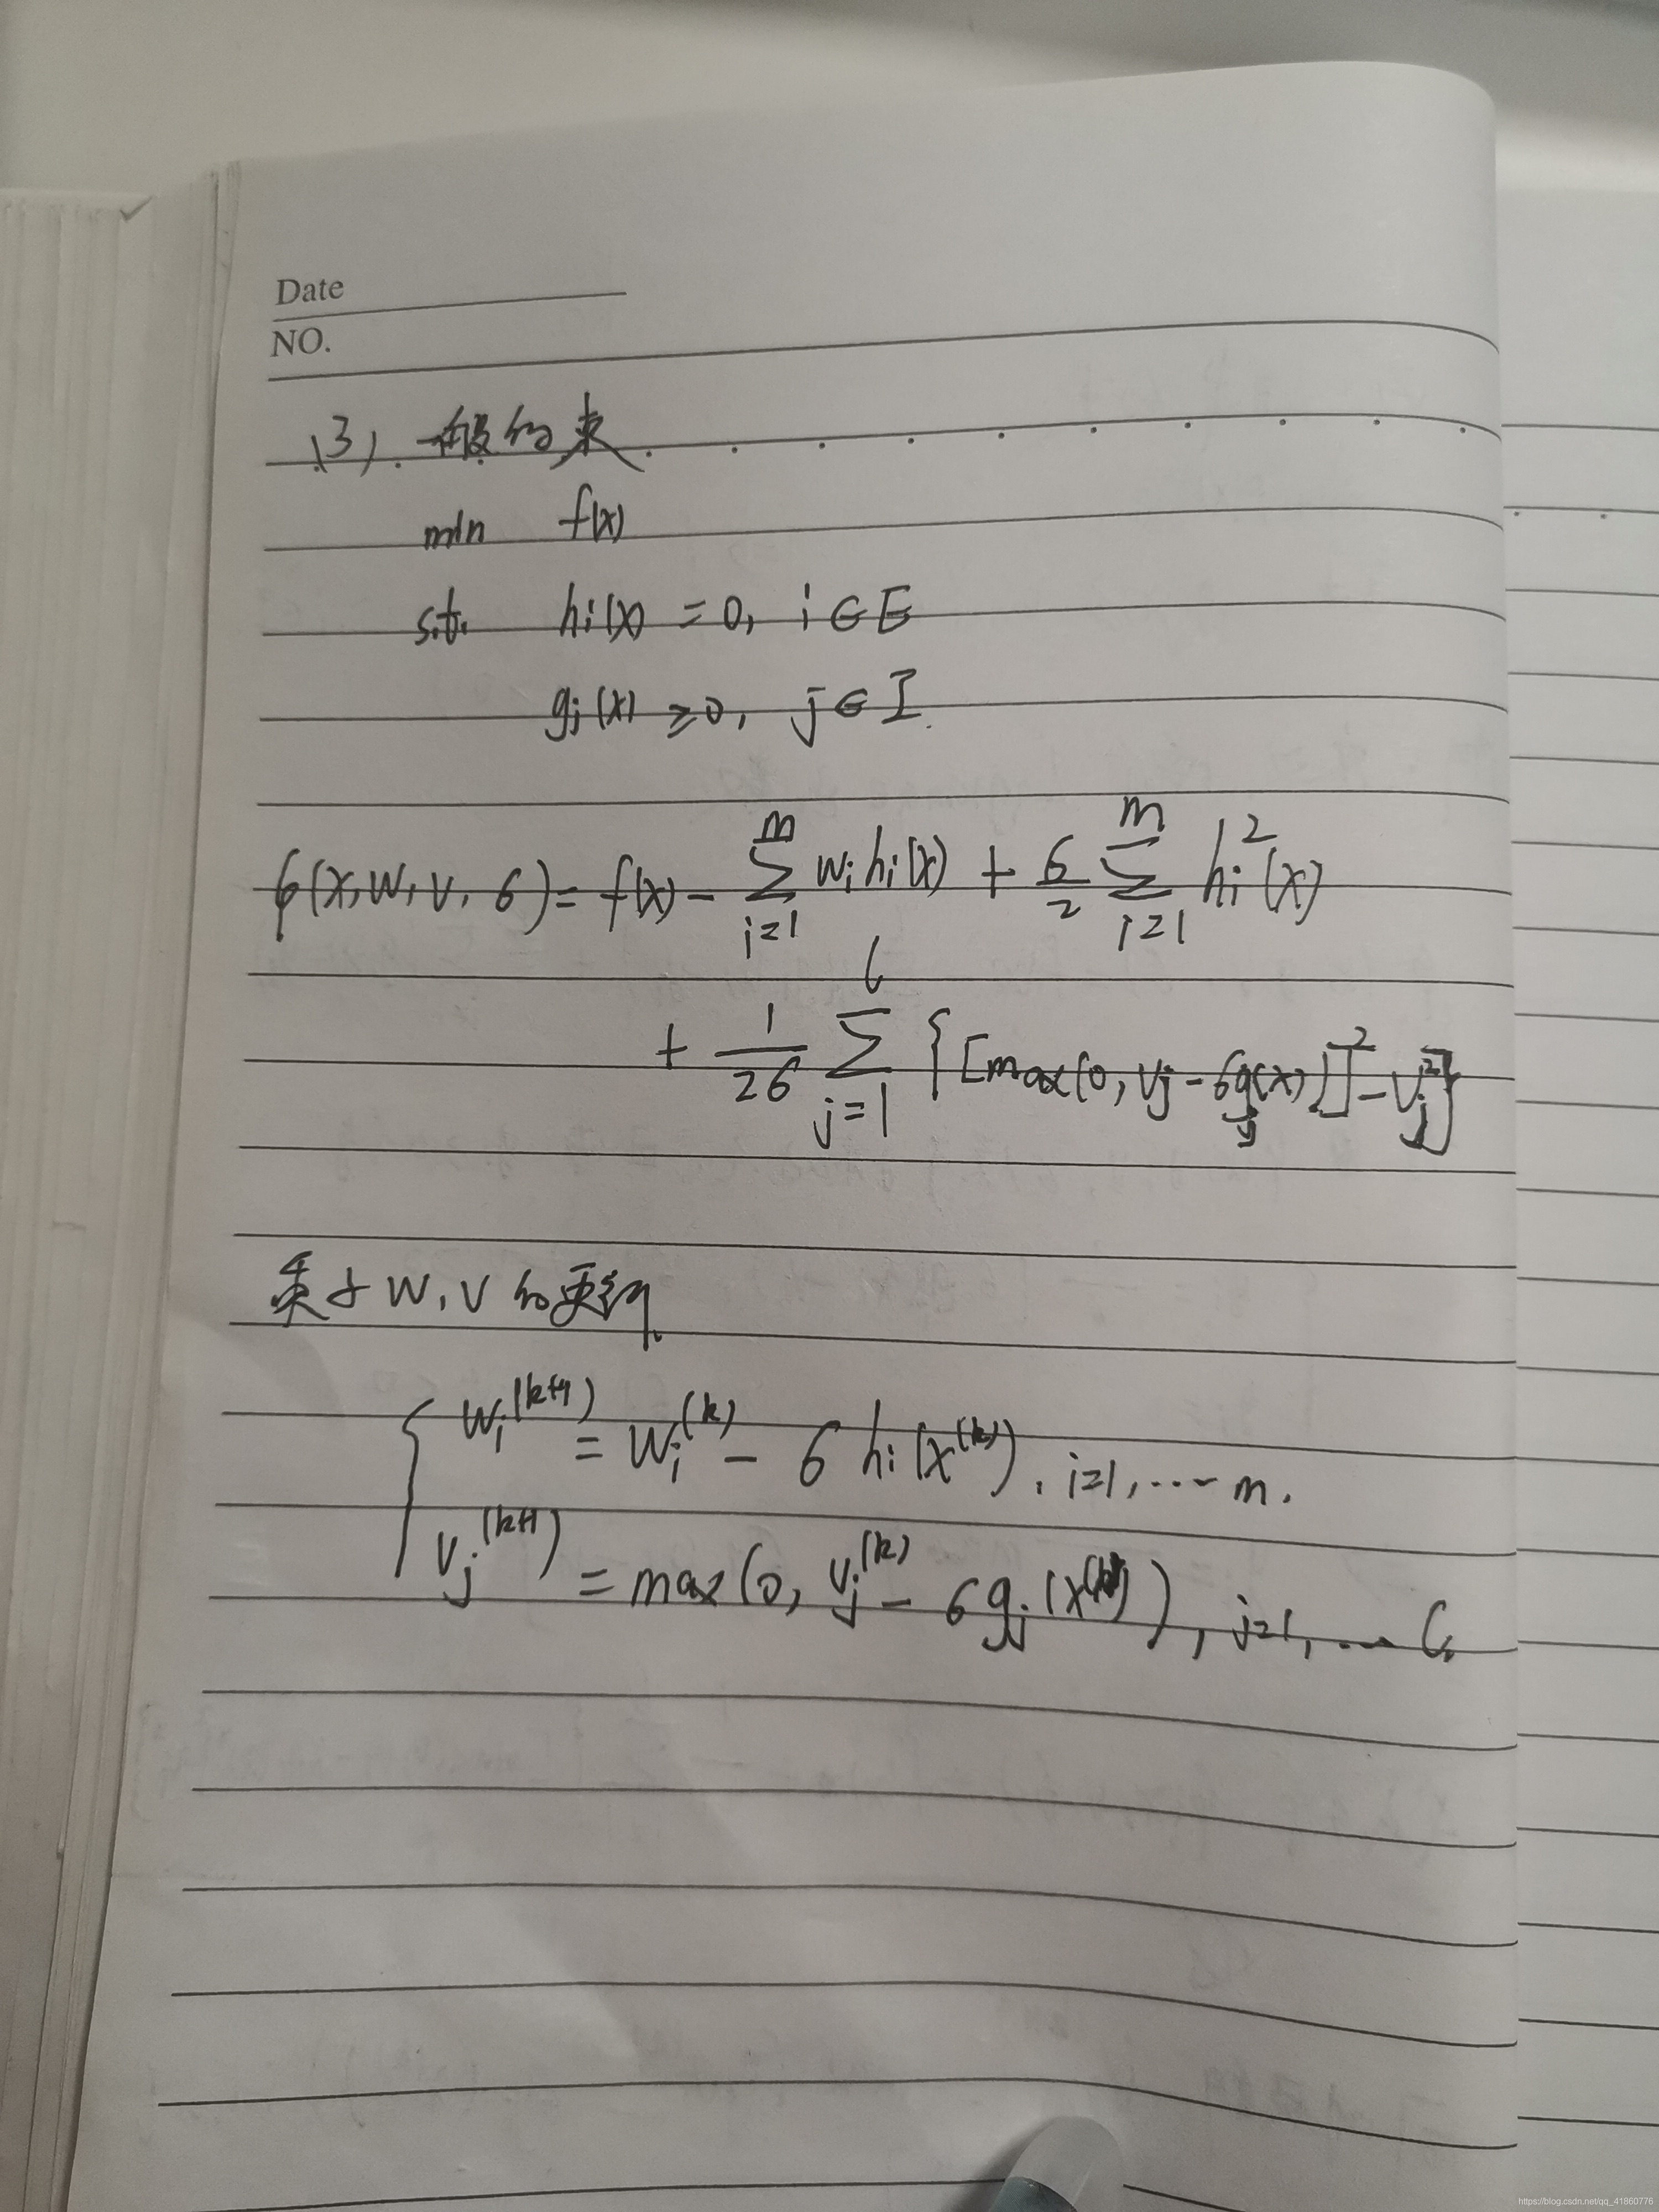 Date
NO.
(3). 一般约束
min f(x)
s.t. hi(x) = 0, i∈E
gj(x) ≥ 0, j∈I.
φ(x,w,v,σ) = f(x) - ∑_{i=1}^{m} wi hi(x) + σ/2 ∑_{i=1}^{m} hi²(x)
+ 1/2σ ∑_{j=1}^{l} {[max(0, vj - σgj(x))]² - vj²}
乘子w,v的更新
{ wi^(k+1) = wi^(k) - σ hi(x^(k)), i=1,...m.
vj^(k+1) = max(0, vj^(k) - σgj(x^(k))), j=1,...l.
https://blog.csdn.net/qq_41860776